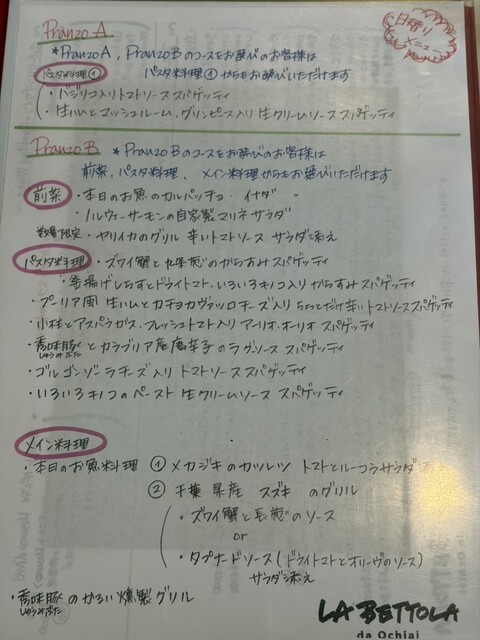 日替り
メニュー
Pranzo A
*Pranzo A, Pranzo Bのコースをお選びのお客様は
パスタ料理① パスタ料理①からもお選びいただけます
・バジリコ入りトマトソース スパゲッティ
・生ハムとマッシュルーム、グリンピース入り 生クリームソース スパゲッティ
Pranzo B *Pranzo Bのコースをお選びのお客様は
前菜、パスタ料理、メイン料理からもお選びいただけます
前菜 ・本日のお魚のカルパッチョ イナダ
・ノルウェーサーモンの自家製マリネサラダ
数量限定 ・ヤリイカのグリル 辛いトマトソース サラダ添え
パスタ料理 ・ズワイ蟹と九条葱のからすみスパゲッティ
・釜揚げしらすとドライトマト、いろいろキノコ入りからすみ スパゲッティ
・プーリア風 生ハムとカチョカヴァッロチーズ入り ちょっとだけ辛いトマトソーススパゲッティ
・小柱とアスパラガス、フレッシュトマト入り アーリオ・オーリオ スパゲッティ
・香味豚とカラブリア産唐辛子のラグソース スパゲッティ
・ゴルゴンゾーラチーズ入りトマトソース スパゲッティ
・いろいろキノコのペースト 生クリームソース スパゲッティ
メイン料理
・本日のお魚料理 ① メカジキのカツレツ トマトとルーコラサラダ添え
② 千葉県産 スズキ のグリル
・ズワイ蟹と長葱のソース
or
・タプナードソース(ドライトマトとオリーヴのソース)
サラダ添え
・香味豚のかるい燻製グリル
LA BETTOLA
da Ochiai